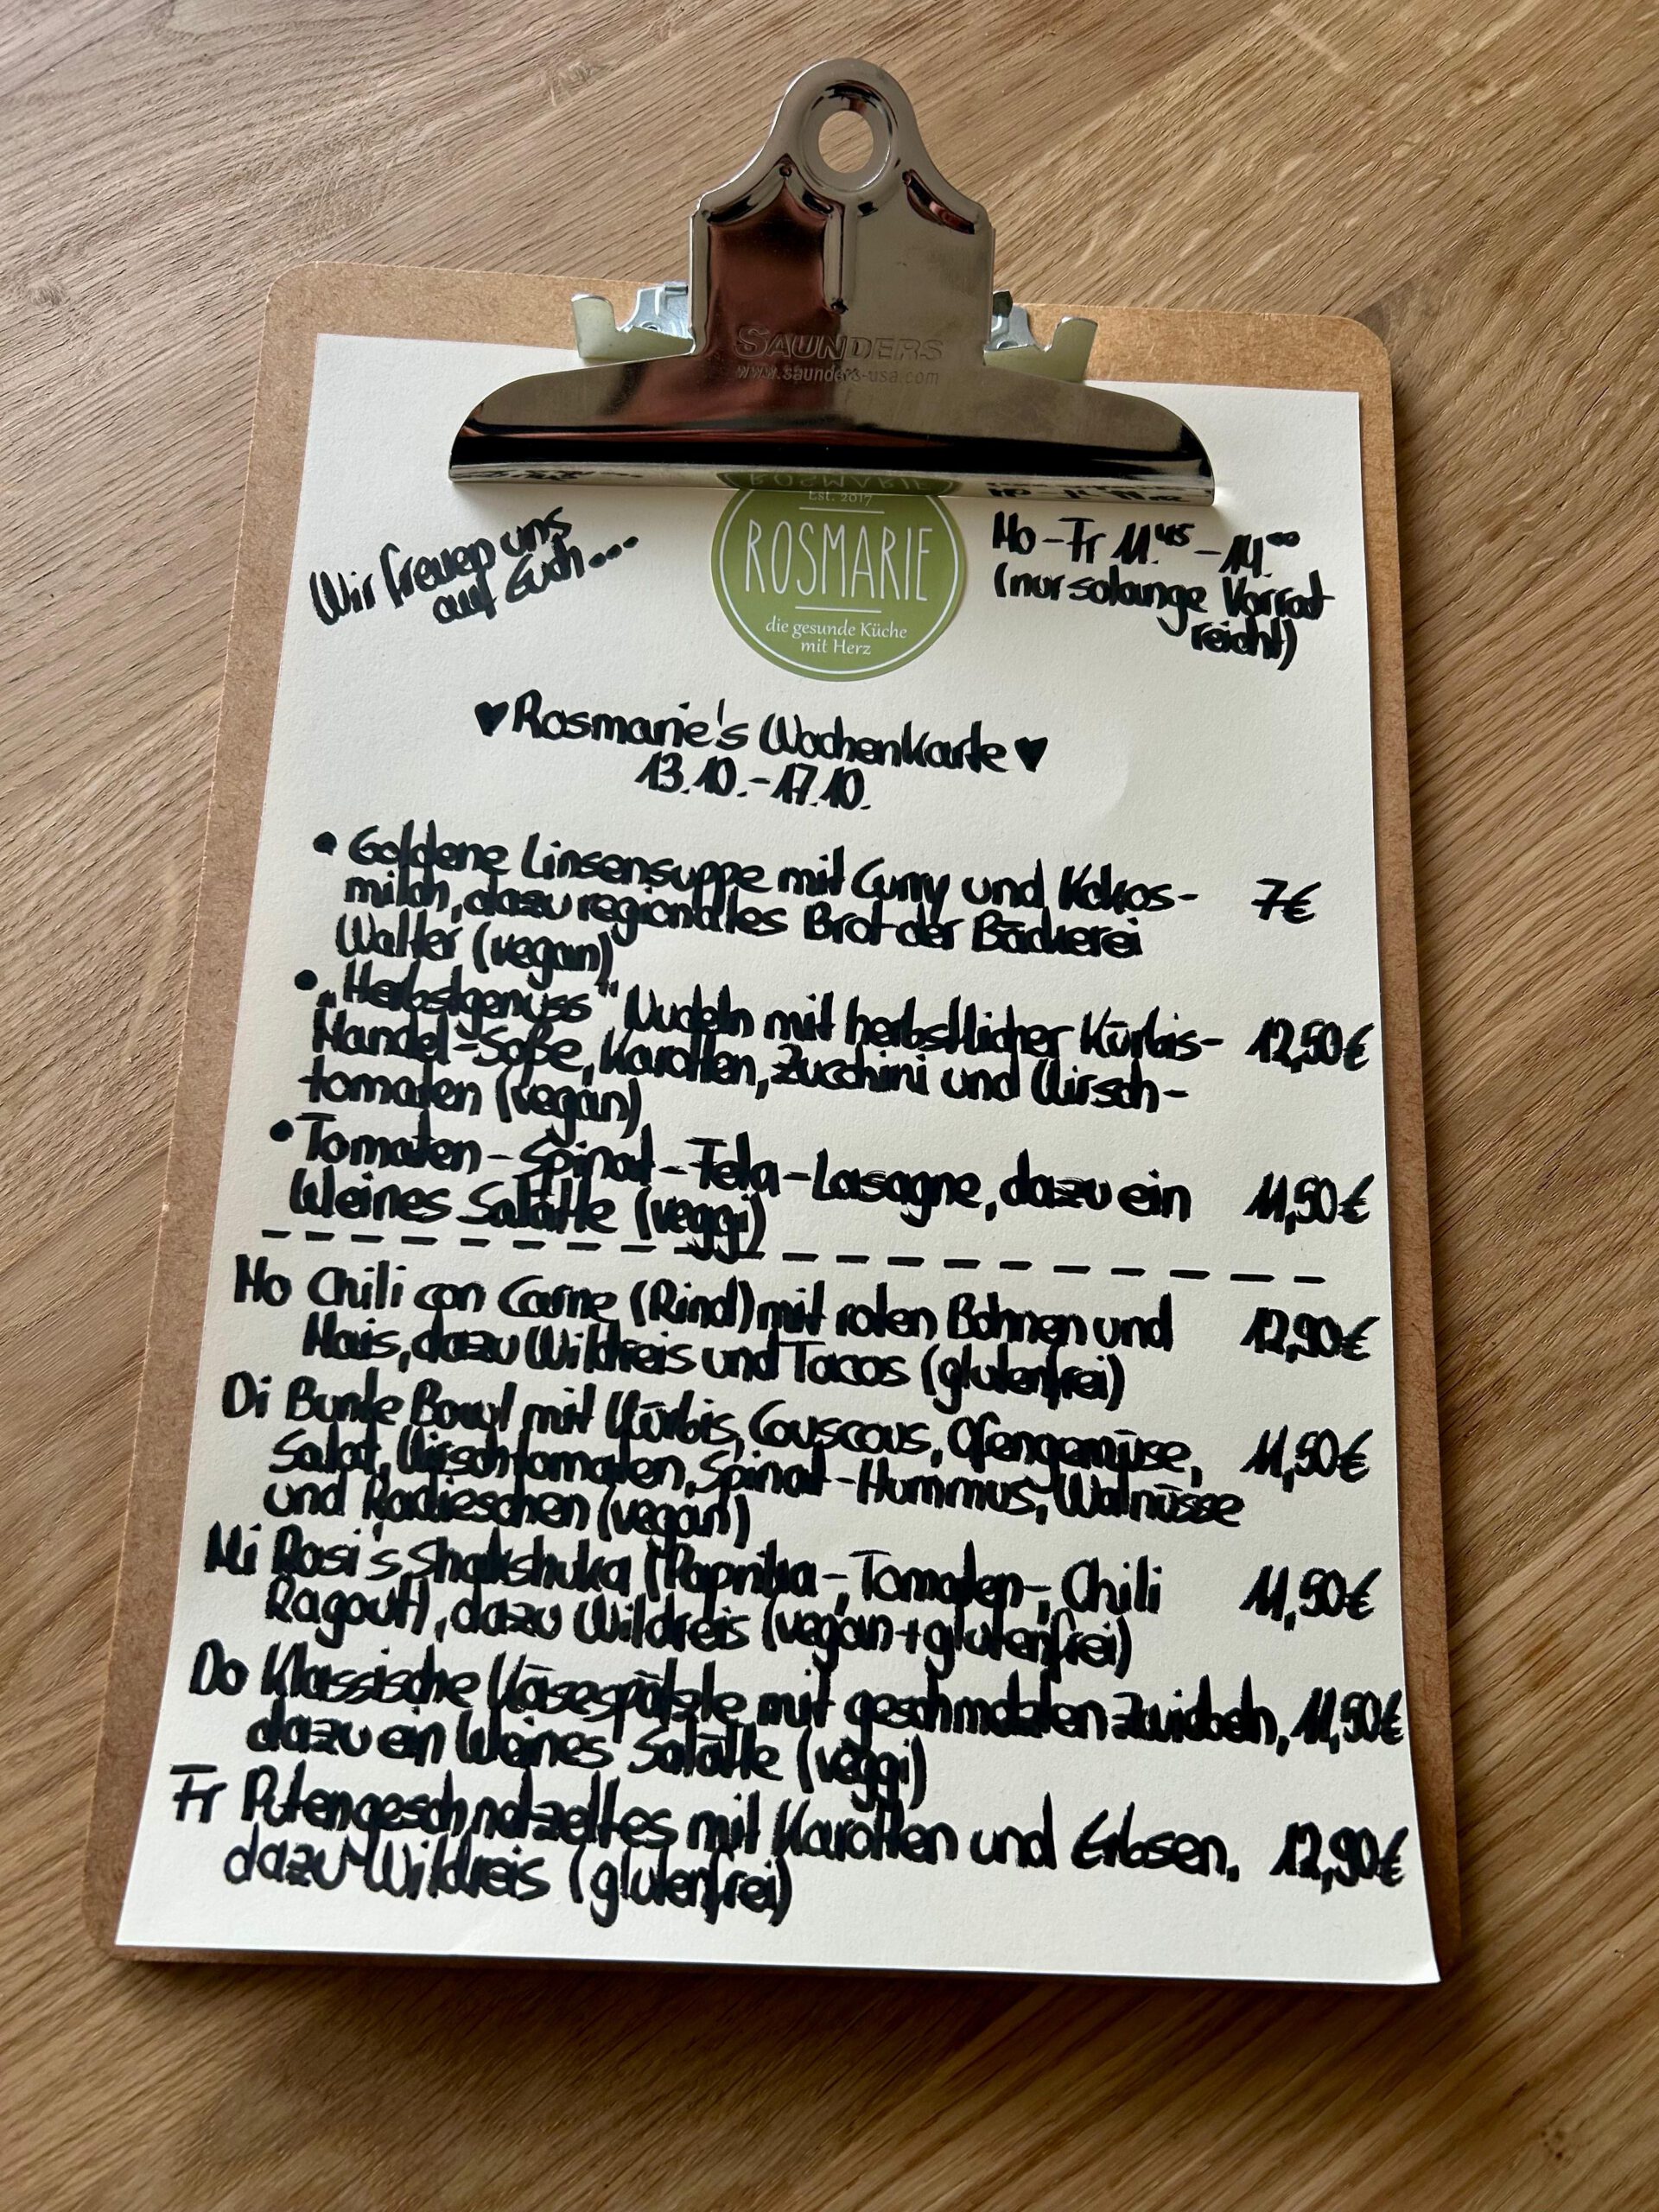 SAUNDERS
www.saunders-usa.com
Est. 2017
ROSMARIE
die gesunde Küche
mit Herz
Wir freuen uns
auf Euch...
Mo-Fr 11.45-14.00
(nur solange Vorrat
reicht)
♥Rosmarie's Wochenkarte♥
13.10.-17.10.
• Goldene Linsensuppe mit Curry und Kokos- 7€
milch, dazu regionales Brot der Bäckerei
Walter (vegan)
• „Herbstgenuss" Nudeln mit herbstlicher Kürbis- 12,50€
Mandel-Soße, Karotten, Zucchini und Kirsch-
tomaten (vegan)
• Tomaten-Spinat-Feta-Lasagne, dazu ein 11,50€
kleines Salätle (veggi)
Mo Chili con Carne (Rind) mit roten Bohnen und 12,90€
Mais, dazu Wildreis und Tacos (glutenfrei)
Di Bunte Bowl mit Kürbis, Couscous, Ofengemüse, 11,50€
Salat, Kirschtomaten, Spinat-Hummus, Walnüsse
und Radieschen (vegan)
Mi Rosi's Shakshuka (Paprika-, Tomaten-, Chili 11,50€
Ragout), dazu Wildreis (vegan+glutenfrei)
Do Klassische Käsespätzle mit geschmolzten Zwiebeln, 11,50€
dazu ein kleines Salätle (veggi)
Fr Putengeschnetzeltes mit Karotten und Erbsen, 12,90€
dazu Wildreis (glutenfrei)